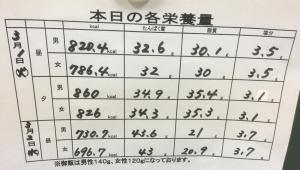 本日の各栄養量
kcal たんぱく質 脂質 塩分
3月1日(火) 昼 男 820.4kcal 32.6 30.1 3.5
女 786.4kcal 32 30 3.5
夕 男 860 kcal 34.9 35.4 3.1
女 826 kcal 34.3 35.3 3.1
3月2日(水) 昼 男 730.7kcal 43.6 21 3.7
女 696.7kcal 43 20.9 3.7
※御飯は男性140g、女性120gになっております。